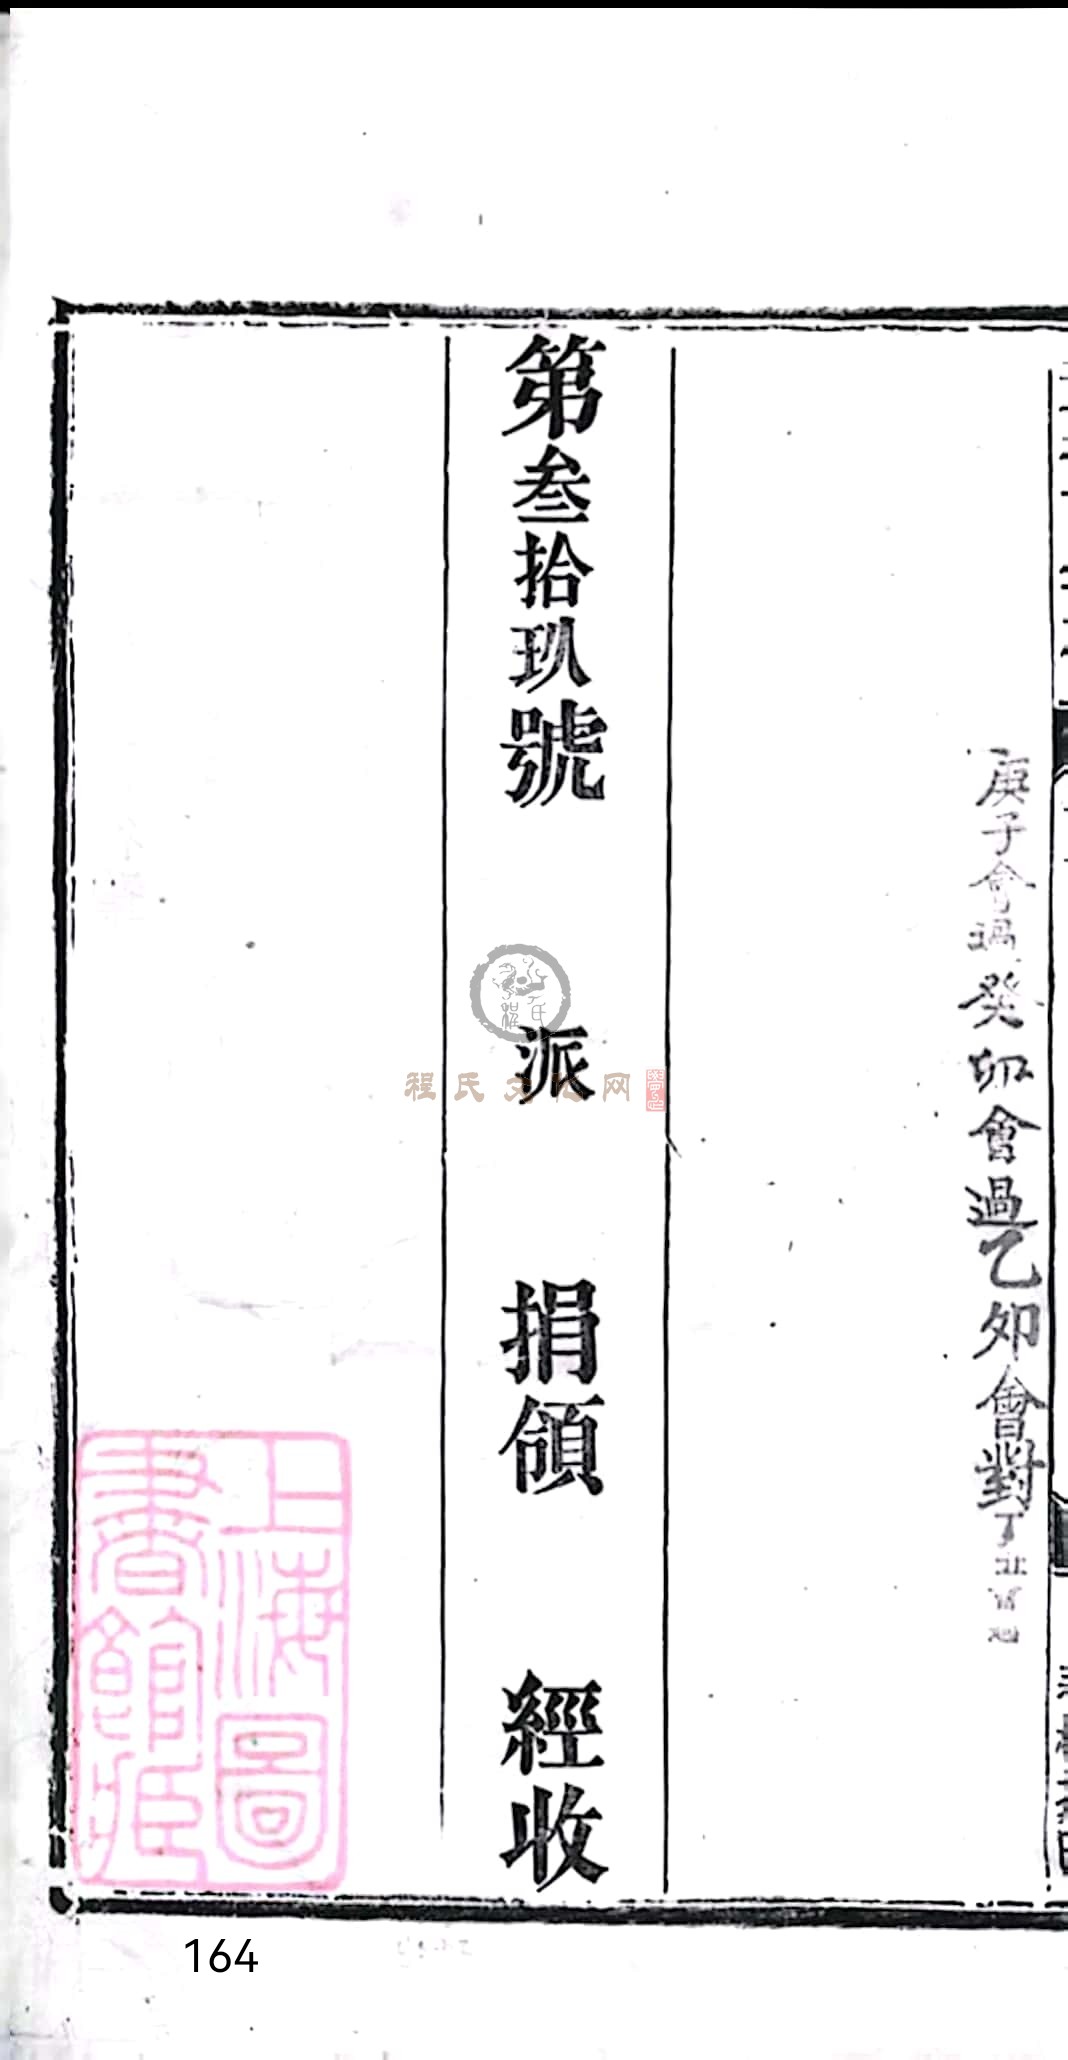 庚子會過癸卯會過乙卯會對丁丑會過
第叁拾玖號 派 捐領 經收
程氏文化网
上海圖
書館藏
164